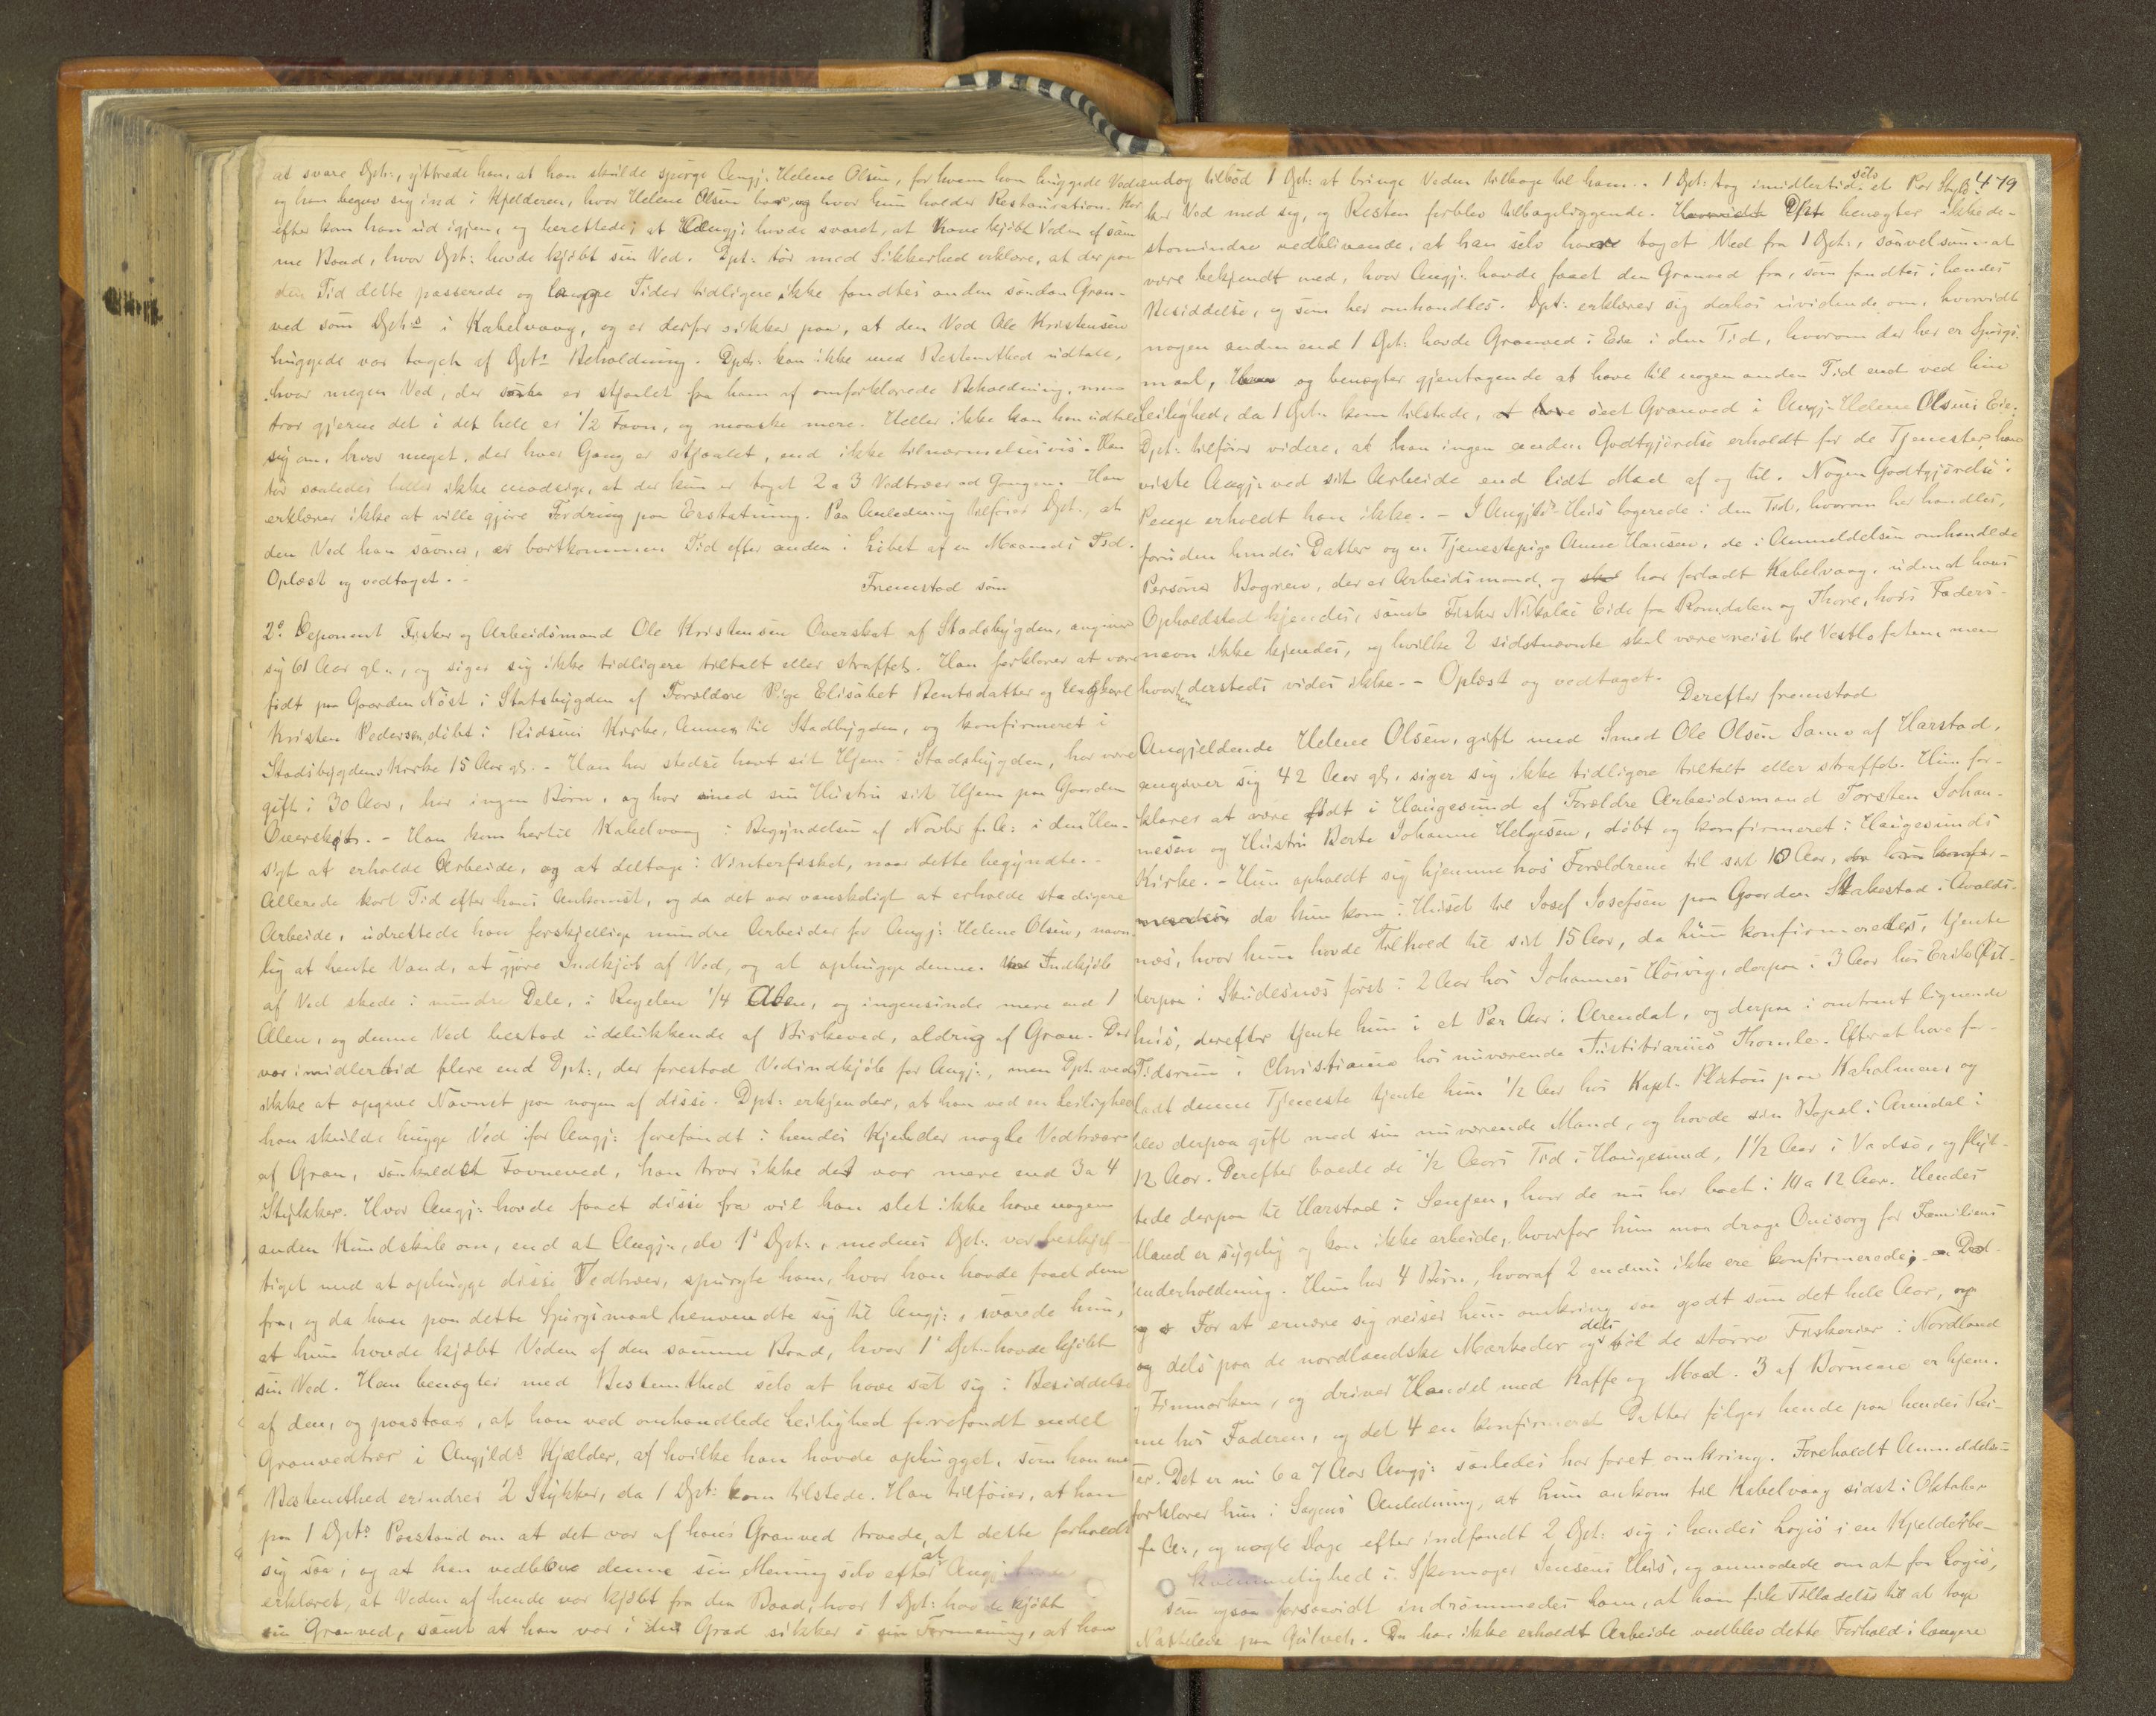 at svare Dpt:, yttrede han, at han skulde spørge Angj: Helene Olsen, for hvem han huggede Veden
og han begav sig ind i Kjelderen, hvor Helene Olsen boer, og hvor hun holder Restauration. Her
efter kom han ud igjen, og berettede, at Angj: havde svaret, at have kjøbt Veden af sam
me Baad, hvor Dpt: havde kjøbt sin Ved. Dpt: tør med Sikkerhed erklære, at der paa
den Tid dette passerede og længre Tider tidligere ikke fandtes anden saadan Gran-
ved som Dpts i Kabelvaag, og er derfor sikker paa, at den Ved Ole Kristensen
huggede var taget af Dpts Beholdning. Dpt: kan ikke med Bestemthed udtale,
hvor megen Ved, der er stjaalet fra ham af omforklarede Beholdning, men
tror gjerne det i det hele er 1/2 Favn, og maaske mere. Heller ikke kan han udtale
sig om, hvor meget, der hver Gang er stjaalet, end ikke tilnærmelsesvis. Han
tør saaledes heller ikke modsige, at der kun er taget 2 a 3 Vedtræer ad Gangen. Han
erklærer ikke at ville gjøre Fordring paa Erstatning. Paa Anledning tilføier Dpt:, at
den Ved han savner, er bortkommen Tid efter anden i Løbet af en Maaneds Tid.
Oplæst og vedtaget. -
Fremstod som
2o Deponent Fisker og Arbeidsmand Ole Kristensen Overskot af Stadsbygden, angiver
sig 61 Aar gl:, og siger sig ikke tidligere tiltalt eller straffet. Han forklarer at være
født paa Gaarden Nøst i Statsbygden af Forældre Pige Elisabet Bentsdatter og Ungkarl
Kristen Pedersen, døbt i Ridsens Kirke, Annex til Stadbygden, og konfirmeret i
Stadsbygdens Kirke 15 Aar gl. - Han har stedse havt sit Hjem i Stadsbygden, har været
gift i 30 Aar, har ingen Børn, og har med sin Hustru sit Hjem paa Gaarden
Overskot. - Han kom hertil Kabelvaag i Begyndelsen af Novbr f. A: i den Hen-
sigt at erholde Arbeide, og at deltage i Vinterfisket, naar dette begyndte. -
Allerede kort Tid efter hans Ankomst, og da det var vanskeligt at erholde stadigere
Arbeide, udrettede han forskjellige mindre Arbeider for Angj: Helene Olsen, navn-
lig at hente Vand, at gjøre Indkjøb af Ved, og at ophugge denne. Indkjøb
af Ved skede i mindre Dele, i Regelen 1/4 Alen, og ingensinde mere end 1
Alen, og denne Ved bestod udelukkende af Birkeved, aldrig af Gran. Der
var imidlertid flere end Dpt:, der forestod Vedindkjøb for Angj:, men Dpt. ved
ikke at opgive Navnet paa nogen af disse. Dpt: erkjender, at han ved en Leilighed
han skulde hugge Ved for Angj: forefandt i hendes Kjelder nogle Vedtræer
af Gran, saakaldet Favneved, han tror ikke det var mere end 3 a 4
Stykker. Hvor Angj: havde faaet disse fra vil han slet ikke have nogen
anden Kundskab om, end at Angj:, da 1s Dpt:, medens Dpt: var beskjæf-
tiget med at ophugge disse Vedtræer, spurgte ham, hvor han havde faaet dem
fra, og da han paa dette Spørgsmaal henvendte sig til Angj:, svarede hun,
at hun havde kjøbt Veden af den samme Baad, hvor 1s Dpt: havde kjøbt
sin Ved. Han benægter med Bestemthed selv at have sat sig i Besiddelse
af den, og paastaar, at han ved omhandlede Leilighed forefandt endel
Granvedtrær i Angjlds Kjælder, af hvilke han havde ophugget, som han med
Bestemthed erindrer 2 Stykker, da 1 Dpt: kom tilstede. Han tilføier, at han
paa 1 Dpts Paastand om at det var af hans Granved troede, at dette forholdt
sig saa, og at han vedblev denne sin Mening selv efter at Angj:
erklæret, at Veden af hende var kjøbt fra den Baad, hvor 1 Dpt: havde kjøbt
sin Granved, samt at han var i den Grad sikker i sin Formening, at han
479
endog tilbød 1 Dpt: at bringe Veden tilbage til ham. 1 Dpt: tog imidlertid selv et Par Styk
ker Ved med seg, og Resten forblev tilbageliggende. Dpt. benægter ikkede-
stomindre vedblivende, at han selv har taget Ved fra 1 Dpt:, saavelsom at
være bekjendt med, hvor Angj: havde faaet den Granved fra, som fandtes i hendes
Besiddelse, og som her omhandles. Dpt: erklærer sig derhos uvidende om, hvorvidt
nogen anden end 1 Dpt: havde Granved i Eie i den Tid, hvorom der her er Spørgs-
maal, og benægter gjentagende at have til nogen anden Tid end ved hin
Leilighed, da 1 Dpt: kom tilstede, seet Granved i Angj: Helene Olsens Eie.
Dpt: tilføier videre, at han ingen anden Godtgjørelse erholdt for de Tjenester, han
viste Angj: ved sit Arbeide end lidt Mad af og til. Nogen Godtgjørelse i
Penge erholdt han ikke. - I Angjlds Hus logerede i den Tid, hvorom her handles,
foruden hendes Datter og en Tjenestepige Anne Hansen, de i Anmeldelsen omhandlede
Personer Bogren, der er Arbeidsmand, og har forladt Kabelvaag, uden at hans
Opholdsted kjendes, samt Fisker Nikolai Eide fra Romdalen og Thore, hvis Faders-
navn ikke kjendes, og hvilke 2 sidstnævnte skal være reist til Vestlofoten, men
hvorhen dersteds vides ikke. - Oplæst og vedtaget.
Derefter fremstod
Angjeldende Helene Olsen, gift med Smed Ole Olsen Samo af Harstad,
angiver sig 42 Aar gl., siger sig ikke tidligere tiltalt eller straffet. Hun for-
klarer at være født i Haugesund af Forældre Arbeidsmand Torsten Johan-
nesen og Hustru Berte Johanne Helgesen, døbt og konfirmeret i Haugesunds
Kirke. - Hun opholdt sig hjemme hos Forældrene til sit 10 Aar,
da hun kom i Huset til Josef Josefsen paa Gaarden Stokestad i Avalds-
næs, hvor hun havde Tilhold til sit 15 Aar, da hun konfirmeredes, tjente
derpaa i Skudesnæs først i 2 Aar hos Johannes Høivig, derpaa i 3 Aar hos Erik Øst-
hus, derefter tjente hun i et Par Aar i Arendal, og derpaa i omtrent lignende
Tidsrum i Christiania hos nuværende Justitiarius Thomle. Efter at have for-
ladt denne Tjeneste tjente hun 1/2 Aar hos Kapt. Platou paa Kaholmen, og
blev derpaa gift med sin nuværende Mand, og havde sin Bopæl i Arendal i
12 Aar. Derefter boede de 1/2 Aars Tid i Haugesund, 1 1/2 Aar i Vadsø, og flyt-
tede derpaa til Harstad i Senjen, hvor de nu har boet i 10 a 12 Aar. Hendes
Mand er sygelig og kan ikke arbeide, hvorfor hun maa drage Omsorg for Familiens
Underholdning. Hun har 4 Børn, hvoraf 2 endnu ikke ere konfirmerede;
For at ernære sig reiser hun omkring saa godt som det hele Aar,
og dels paa de nordlandske Markeder og dels til de større Fiskerier i Nordland
og Finmarken, og driver Handel med Kaffe og Mad. 3 af Børnene er hjem-
me hos Faderen, og det 4 en konfirmeret Datter følger hende paa hendes Rei-
ser. Det er nu 6 a 7 Aar Angj: saaledes har faret omkring. Foreholdt Anmeldelsen
forklarer hun i Sagens Anledning, at hun ankom til Kabelvaag sidst i Oktober
f. A:, og nogle Dage efter indfandt 2 Dpt: sig i hendes Logis i en Kjelderbe-
kvemmelighed i Skomager Jensens Hus, og anmodede om at faa Logis,
som ogsaa forsaavidt indrømmedes ham, at han fik Tilladelse til at tage
Natteleie paa Gulvet. Da han ikke erholdt Arbeide vedblev dette Forhold i længere